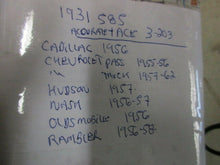 1931 585
ACCURATE ACK 3-203
CADILLAC 1956
CHEVROLET PASS 1955-56
" TRUCK 1957-62
HUDSON 1957
NASH 1956-57
OLDSMOBILE 1956
RAMBLER 1956-58